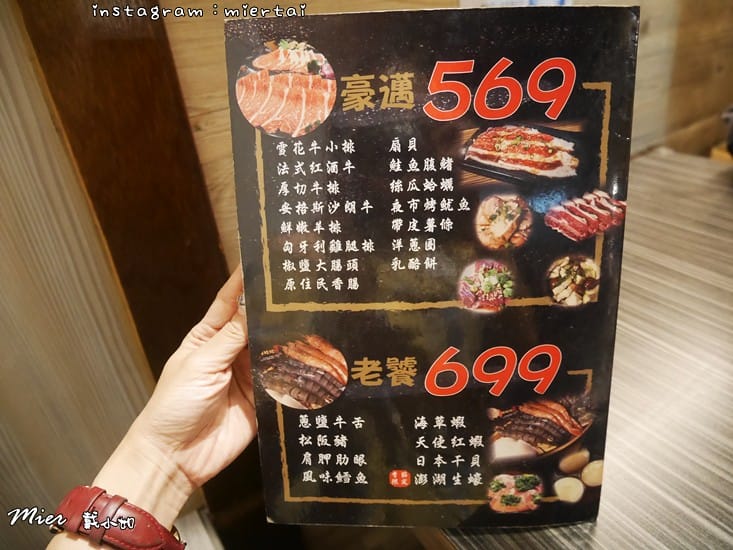 instagram：miertai
豪邁 569
雪花牛小排
法式紅酒牛
厚切牛排
安格斯沙朗牛
鮮嫩羊排
匈牙利雞腿排
椒鹽大腸頭
原住民香腸
扇貝
鮭魚腹鰭
絲瓜蛤蠣
夜市烤魷魚
帶皮薯條
洋蔥圈
乳酪餅
老饕 699
蔥鹽牛舌
松阪豬
肩胛肋眼
風味鱈魚
海草蝦
天使紅蝦
日本干貝
澎湖生蠔
Mier 戴小如